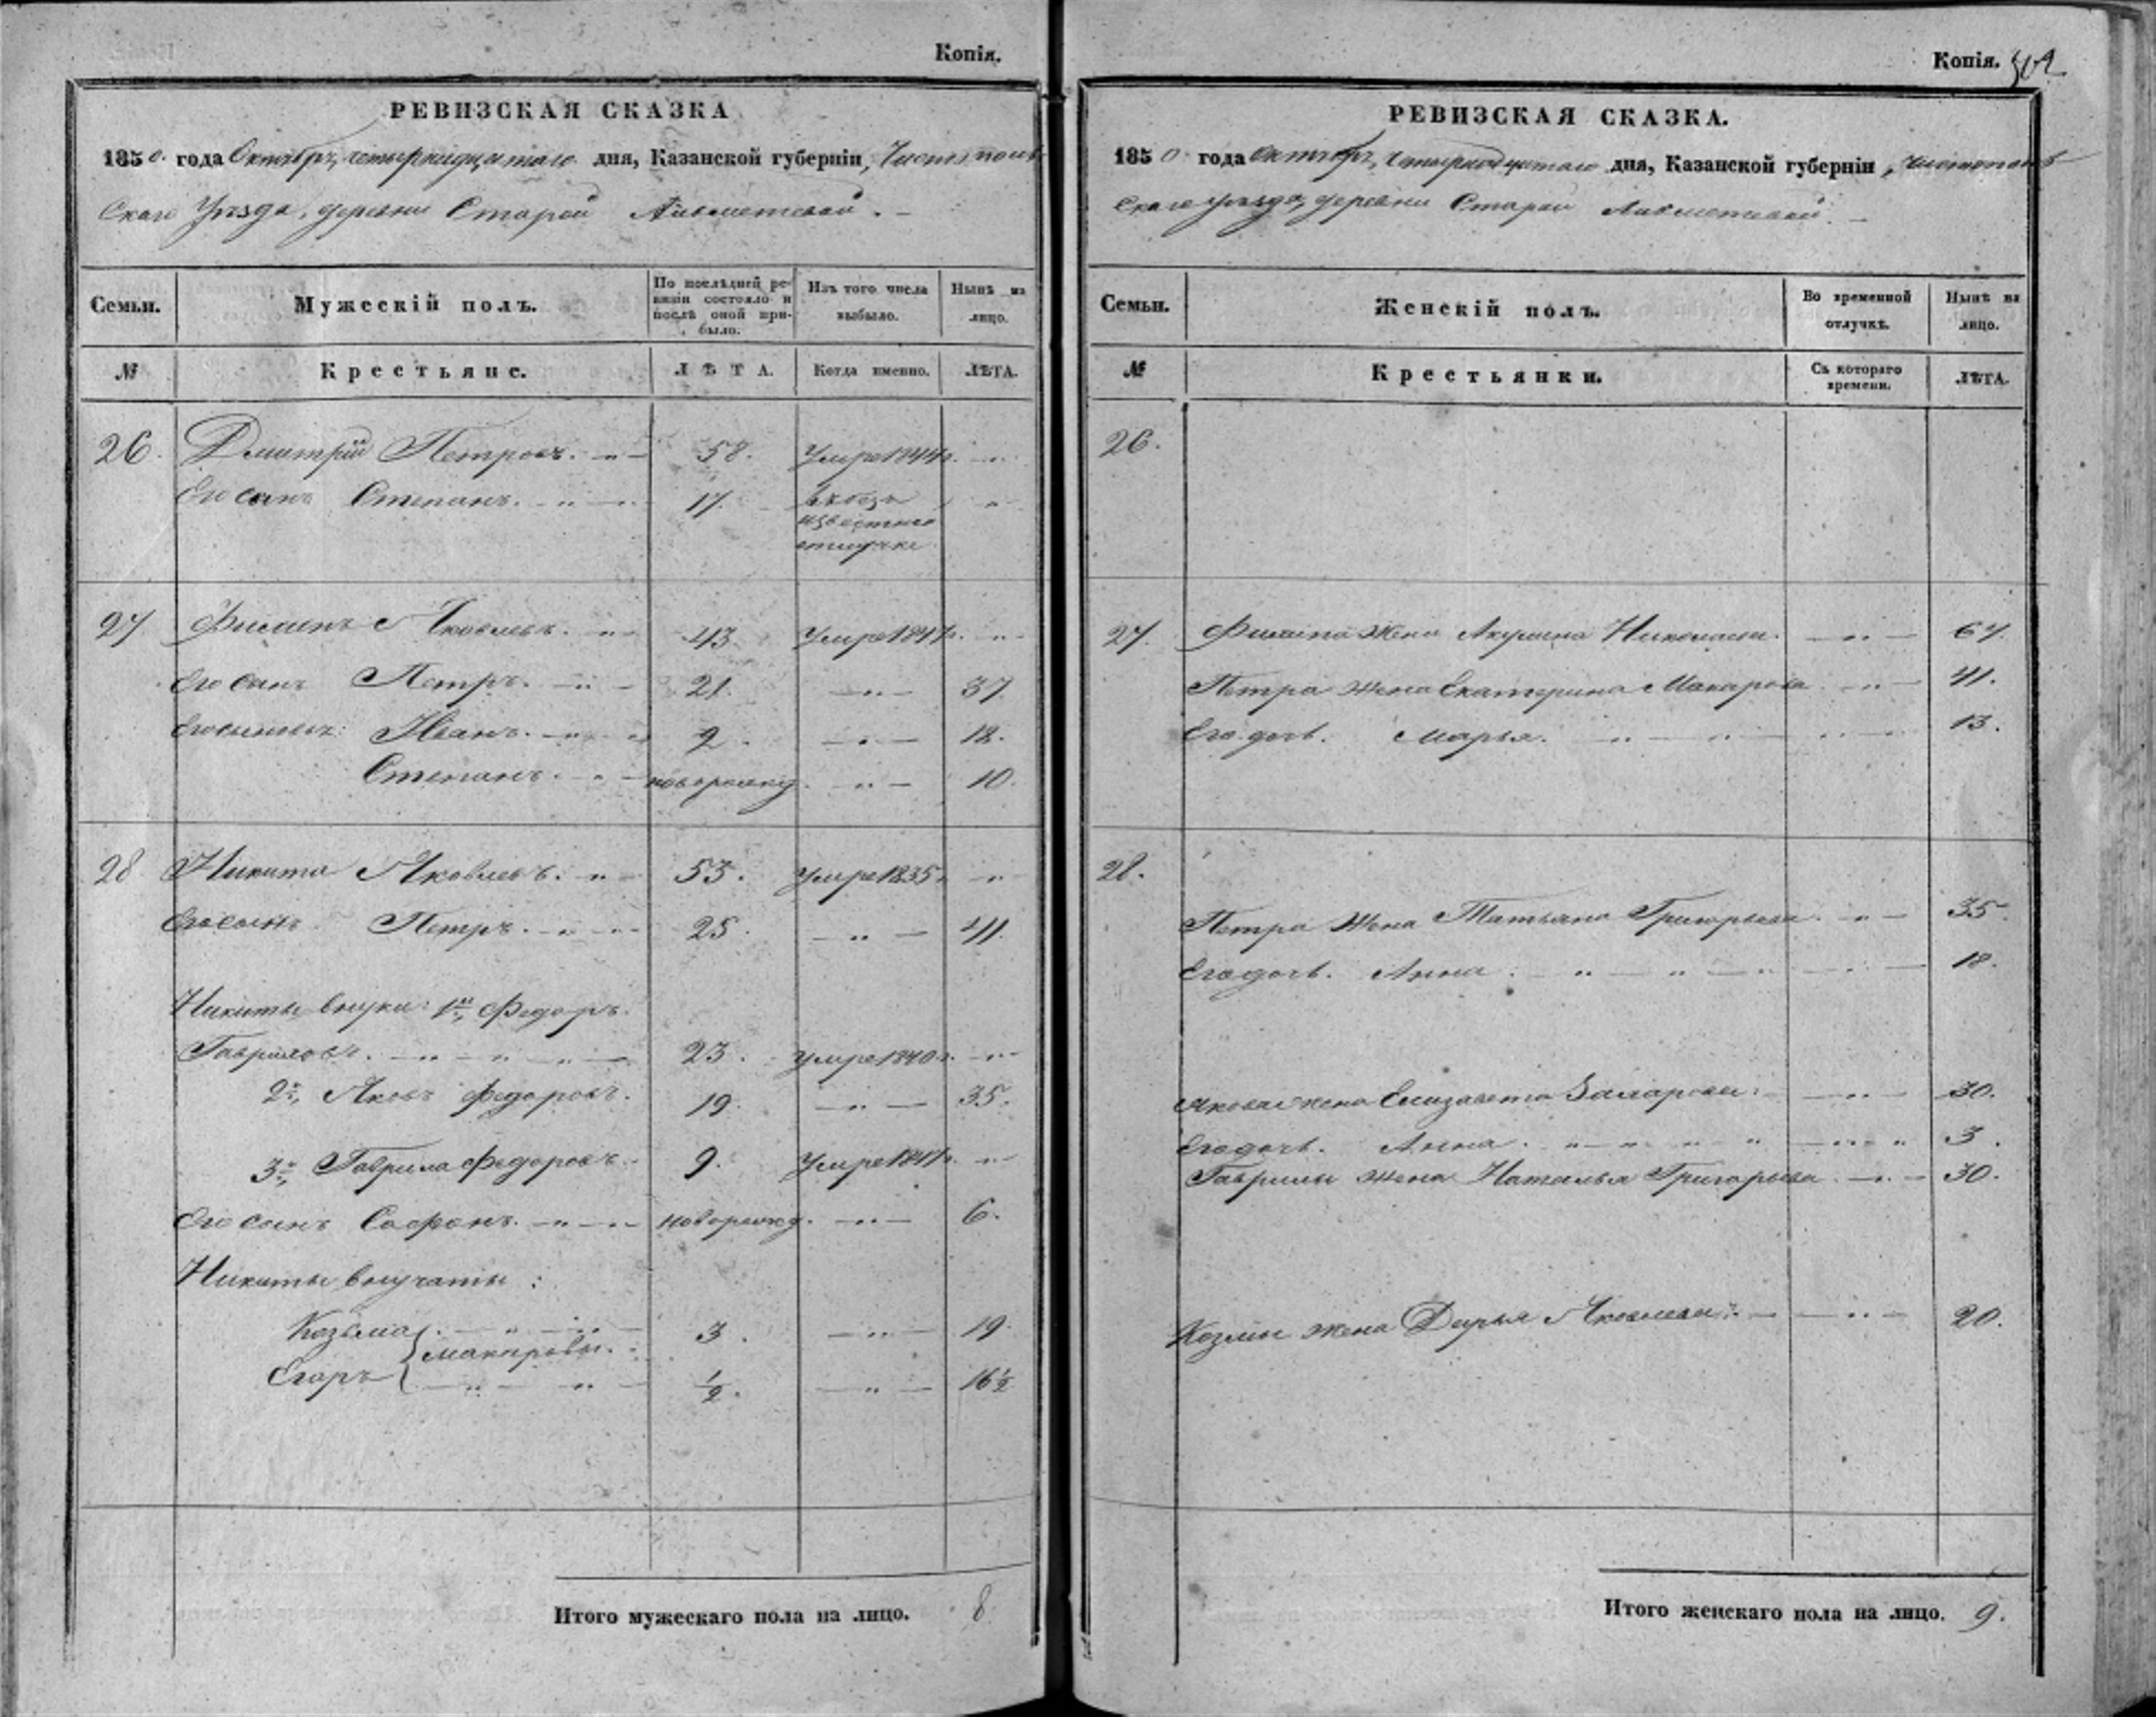 Копія.
РЕВИЗСКАЯ СКАЗКА
1850 года Октября четырнадцатаго дня, Казанской губерніи, Чистополь
скаго Уѣзда, деревни Старой
Семьи. Мужескій полъ. По послѣдней ревизіи состояло и послѣ оной прибыло. Изъ того числа выбыло. Нынѣ на лицо.
№ Крестьяне. ЛѢТА. Когда именно. ЛѢТА.
26. Дмитрій Петровъ. 58. Умре 1844
Его сынъ Степанъ. 17. въ безъ
извѣстной
отлучке
27 Филипъ Яковлевъ. 43. Умре
Его сынъ Петръ. 21. 37
Его сыновья: Иванъ. 2. 18.
Степанъ. новорожд. 10.
28 Никита Яковлевъ. 53. Умре 1835
Его сынъ Петръ. 25. 41.
Никиты внуки: 1й Федоръ
Гавриловъ. 23. Умре 1840
2й, Яковъ Федоровъ. 19. 35.
3й, Гаврила Федоровъ. 9. Умре
Его сынъ Софронъ. новорожд. 6.
Никиты внучаты:
Козьма 3. 19.
Макаровы.
Егоръ ½. 16½
Итого мужескаго пола на лицо. 8.
Копія. 502
РЕВИЗСКАЯ СКАЗКА.
1850 года Октября, четырнадцатаго дня, Казанской губерніи, Чистополь
скаго Уѣзда, деревни Старой
Семьи. Женскій полъ. Во временной отлучкѣ. Нынѣ на лицо.
№ Крестьянки. Съ котораго времени. ЛѢТА.
26.
27. Филипа жена Акулина Николаева. 67.
Петра жена Екатерина Макарова 41.
Его дочь. Марья. 13.
28.
Петра жена Татьяна Григорьева. 35.
Его дочь. Анна. 18.
Якова жена Елизавета 30.
Его дочь. Анна. 3.
Гаврилы жена Наталья Григорьева. 30.
Козмы жена Дарья Яковлева 20.
Итого женскаго пола на лицо. 9.